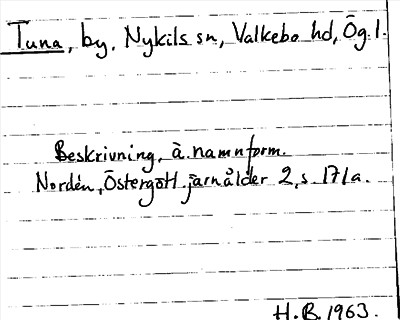 Tuna, by, Nykils sn, Valkebo hd, Ög. l.
Beskrivning, ä. namnform.
Nordén, Östergötl. järnålder 2, s. 171a.
H.B. 1963.